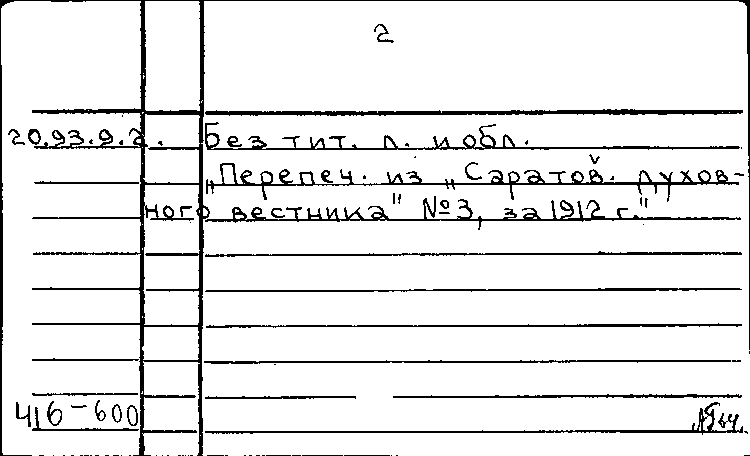 2
20.93.9.2. Без тит. л. и обл.
„Перепеч. из „Саратов. духов-
ного вестника" № 3, за 1912 г."
416-600